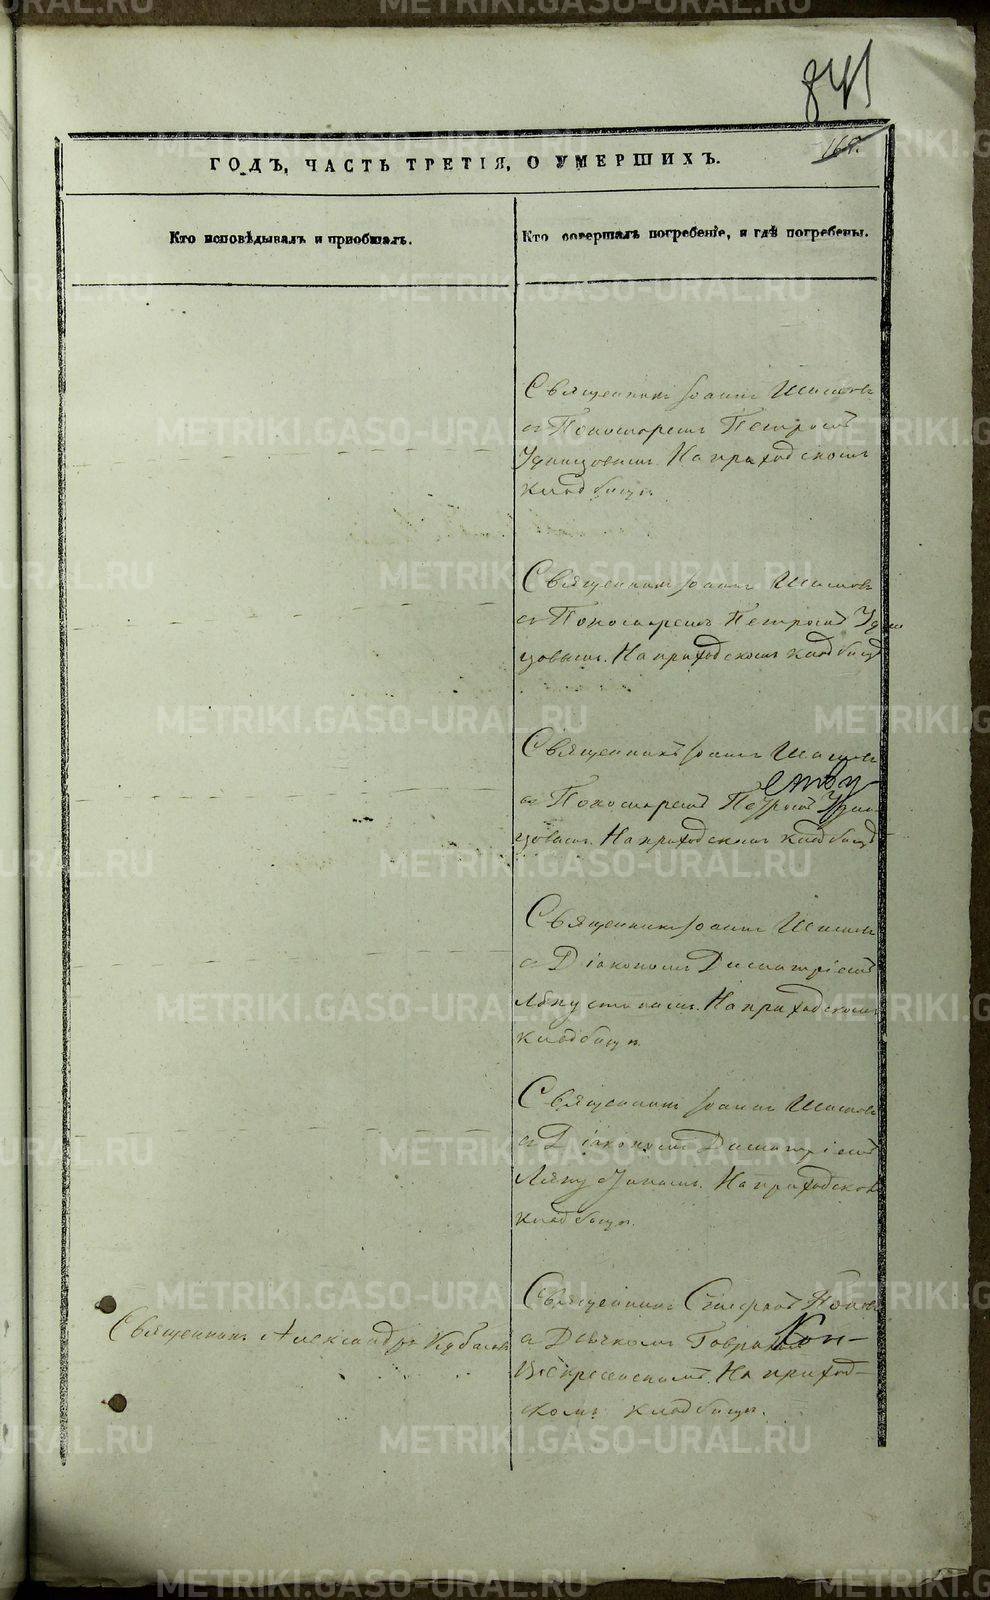 841
168.
ГОДЪ, ЧАСТЬ ТРЕТІЯ, О УМЕРШИХЪ.
Кто исповѣдывалъ и пріобщалъ.
Кто совершалъ погребеніе, и гдѣ погребены.
Священникъ Іоаннъ Шишовъ
съ Пономаремъ Петромъ
Удинцовымъ. На приходскомъ
кладбищѣ.
Священникъ Іоаннъ Шишовъ
съ Пономаремъ Петромъ Удин
цовымъ. На приходскомъ кладбищѣ
Священникъ Іоаннъ Шишовъ
съ Пономаремъ Петромъ Удин
цовымъ. На приходскомъ кладбищѣ
Священникъ Іоаннъ Шишовъ
съ Діакономъ Димитріемъ
Ляпустинымъ. На приходскомъ
кладбищѣ.
Священникъ Іоаннъ Шишовъ
съ Діакономъ Димитріемъ
Ляпустинымъ. На приходском
кладбищѣ.
Священникъ Александръ
Священникъ Стефанъ
съ Дьячкомъ
Воскресенскимъ. На приход-
скомъ кладбищѣ.
METRIKI.GASO-URAL.RU